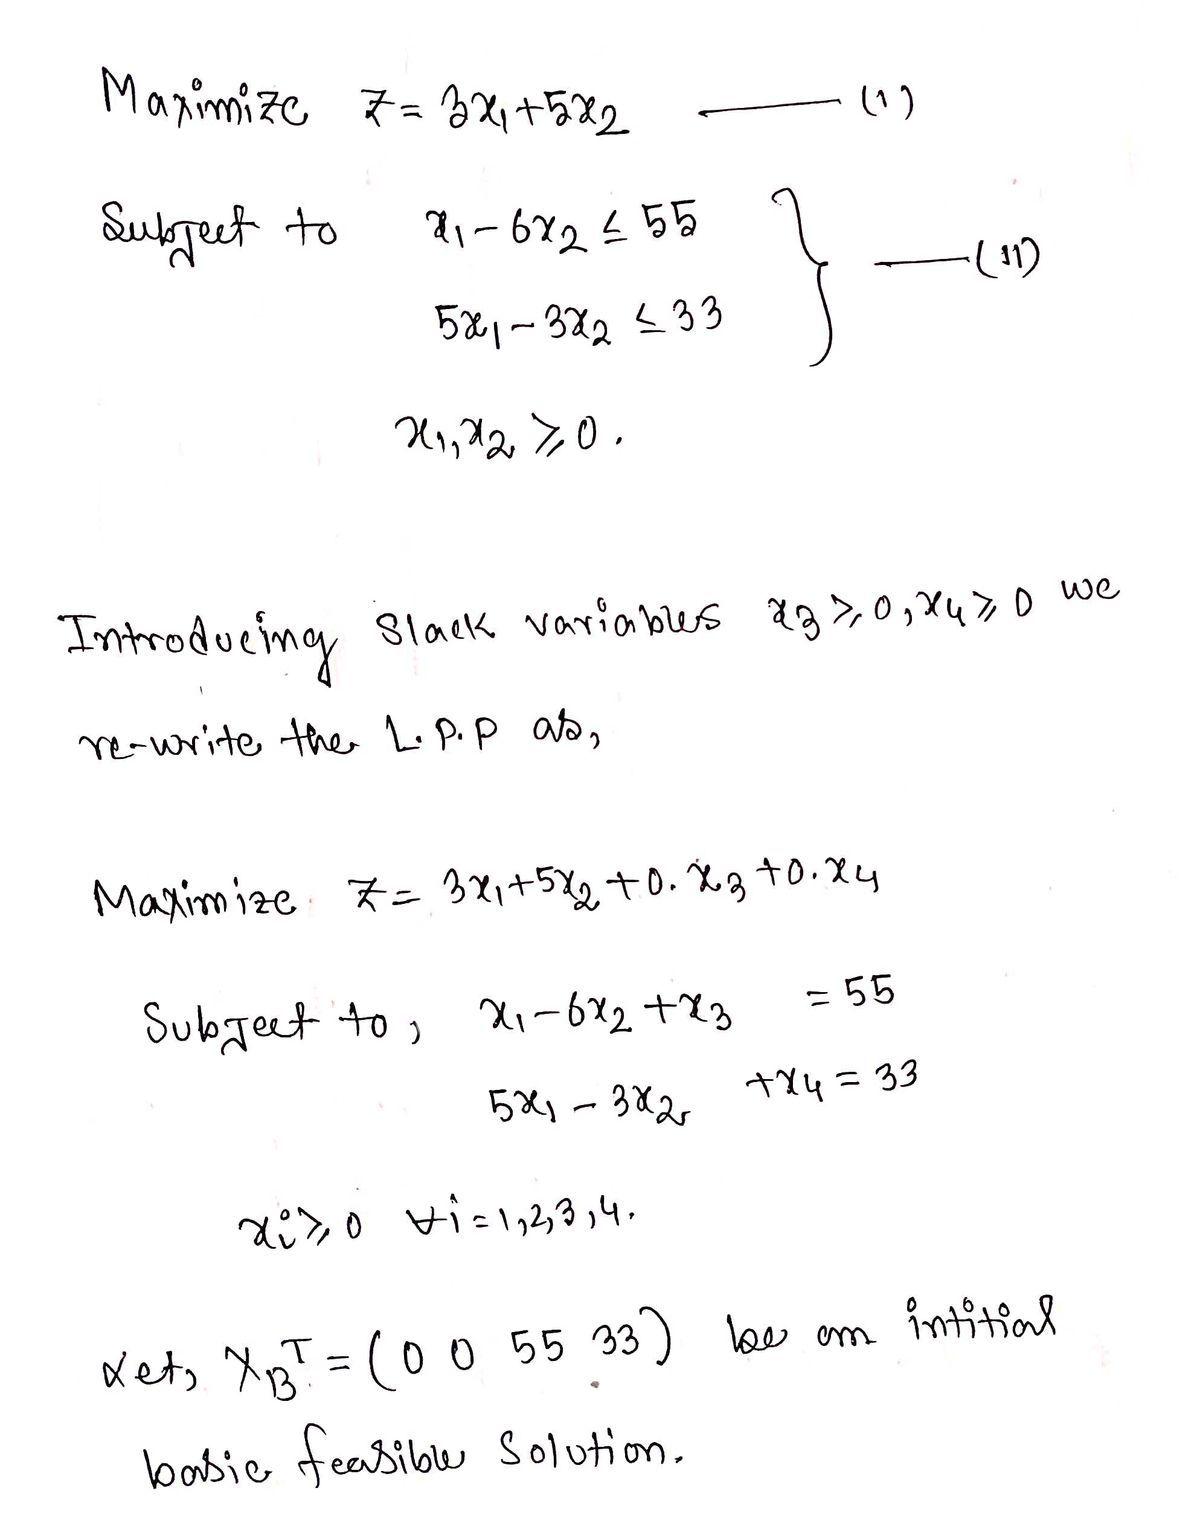 Maximize Z = 3x₁+5x₂ —— (1)
Subject to x₁ - 6x₂ ≤ 55
—— (11)
5x₁ - 3x₂ ≤ 33
x₁, x₂ ≥ 0.
Introducing Slack variables x₃ ≥ 0, x₄ ≥ 0 we
re-write the L.P.P as,
Maximize Z = 3x₁+5x₂ + 0.x₃ + 0.x₄
Subject to, x₁ - 6x₂ + x₃ = 55
5x₁ - 3x₂ + x₄ = 33
xᵢ ≥ 0 ∀i = 1,2,3,4.
Let, X_B^T = (0 0 55 33) be an intitial
basic feasible Solution.